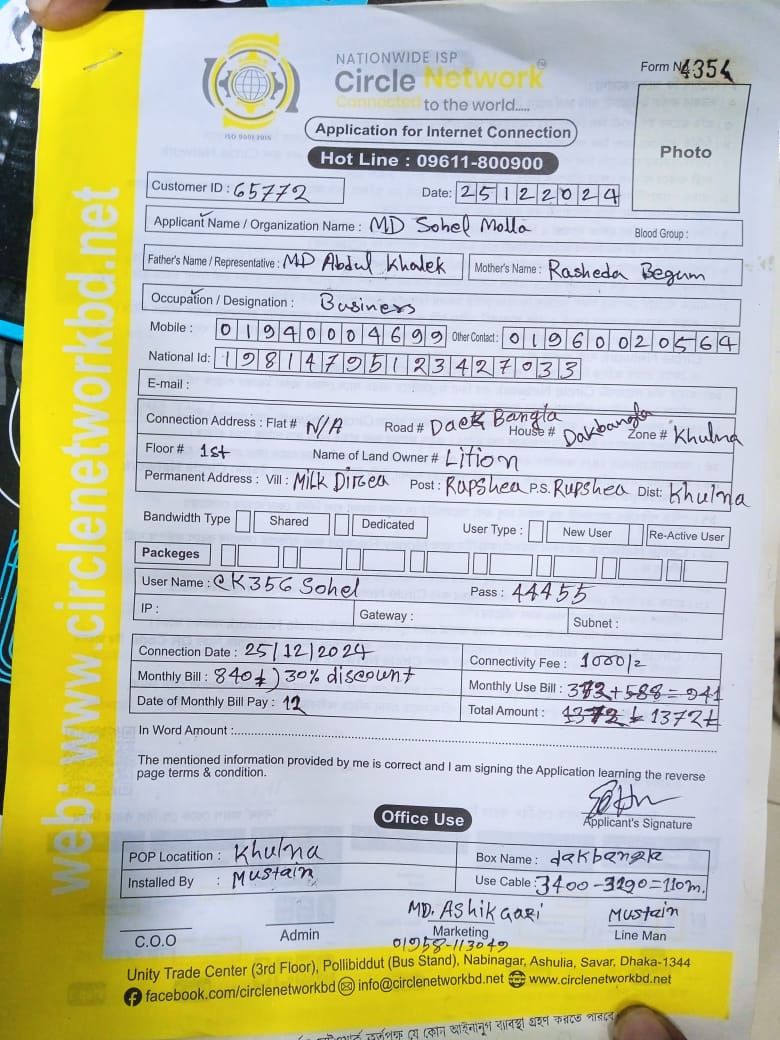 NATIONWIDE ISP
Circle Network
Connected to the world.....
ISO 9001:2015
Form No 4354
Application for Internet Connection
Hot Line : 09611-800900
Photo
Customer ID : 65772
Date: 25122024
Applicant Name / Organization Name : MD Sohel Molla
Blood Group :
Father's Name / Representative : MD Abdul Khalek Mother's Name : Rasheda Begum
Occupation / Designation : Business
Mobile : 01940004699 Other Contact : 01960020564
National Id: 19814795123427033
E-mail :
Connection Address : Flat # N/A Road # Dack Bangla House # Dakbangla Zone # Khulna
Floor # 1st Name of Land Owner # Lition
Permanent Address : Vill : Milk Dirgea Post : Rupshea P.S. Rupshea Dist: Khulna
Bandwidth Type Shared Dedicated User Type : New User Re-Active User
Packeges
User Name : CK356 Sohel Pass : 44455
IP : Gateway : Subnet :
Connection Date : 25/12/2024 Connectivity Fee : 1000/=
Monthly Bill : 840/= ) 30% discount Monthly Use Bill : 373+588=941
Date of Monthly Bill Pay : 12 Total Amount : 1372/=
In Word Amount :
The mentioned information provided by me is correct and I am signing the Application learning the reverse
page terms & condition.
Applicant's Signature
Office Use
POP Locatition : Khulna Box Name : dakbangla
Installed By : Mustain Use Cable : 3400-3290=110m.
MD. Ashik Gazi Mustain
C.O.O Admin Marketing Line Man
01958-113049
Unity Trade Center (3rd Floor), Pollibiddut (Bus Stand), Nabinagar, Ashulia, Savar, Dhaka-1344
facebook.com/circlenetworkbd info@circlenetworkbd.net www.circlenetworkbd.net
web: www.circlenetworkbd.net
কর্তৃপক্ষ যে কোন আইনানুগ ব্যবস্থা গ্রহণ করতে পারবে